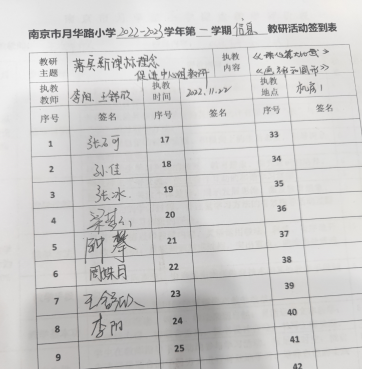 南京市月华路小学2022-2023学年第一学期信息、教研活动签到表
教研主题 落实新课标理念 促进中心组教研
执教内容
执教教师 李阳、王舒欣
执教时间 2022.11.22
执教地点 机房1
序号 签名 序号 签名 序号
1 张可 17 33
2 孙佳 18 34
3 张冰 19 35
4 20 36
5 钟攀 21 37
6 周姝月 22 38
7 王舒欣 23 39
8 李阳 24 40
9 25 41
42